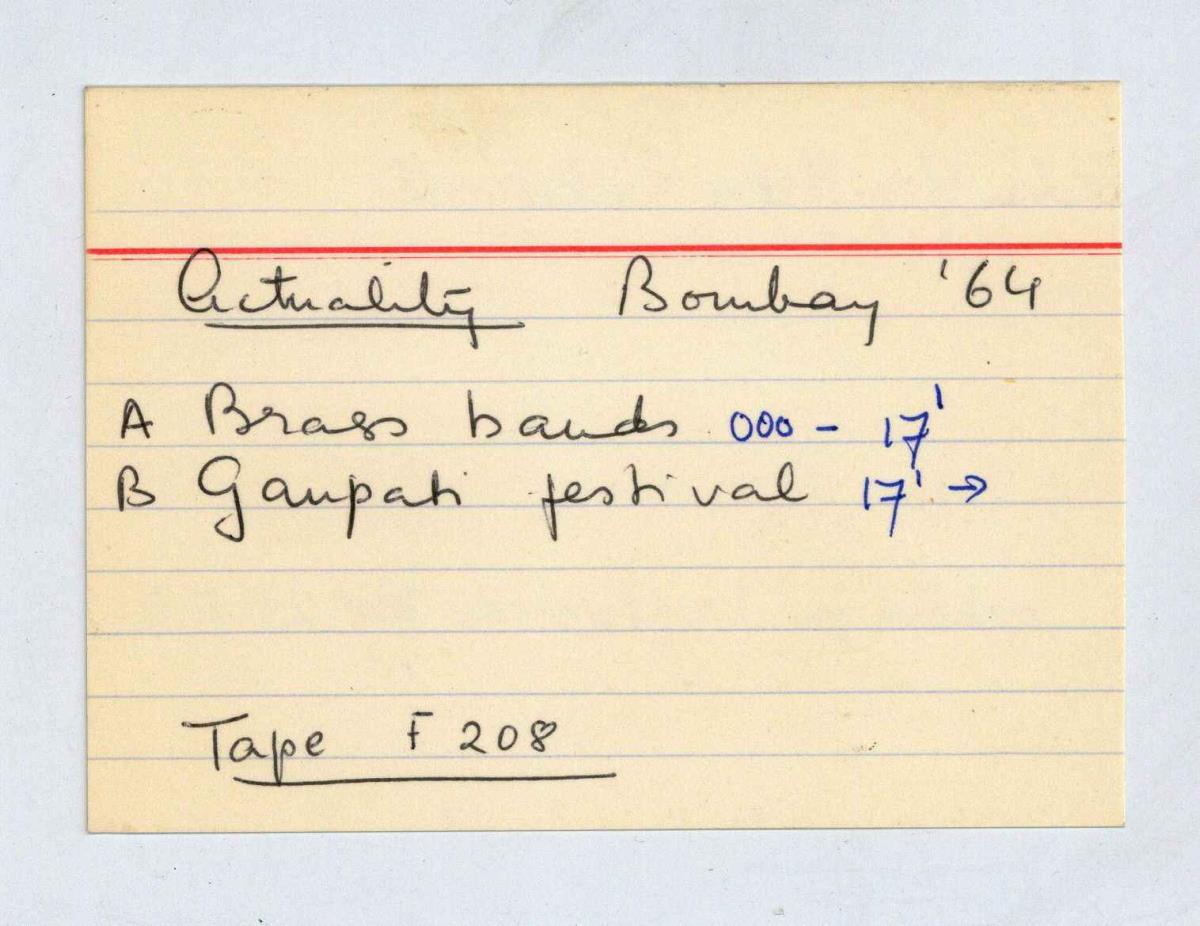 Actuality Bombay '64
A Brass bands 000 - 17'
B Ganpati festival 17' →
Tape F 208